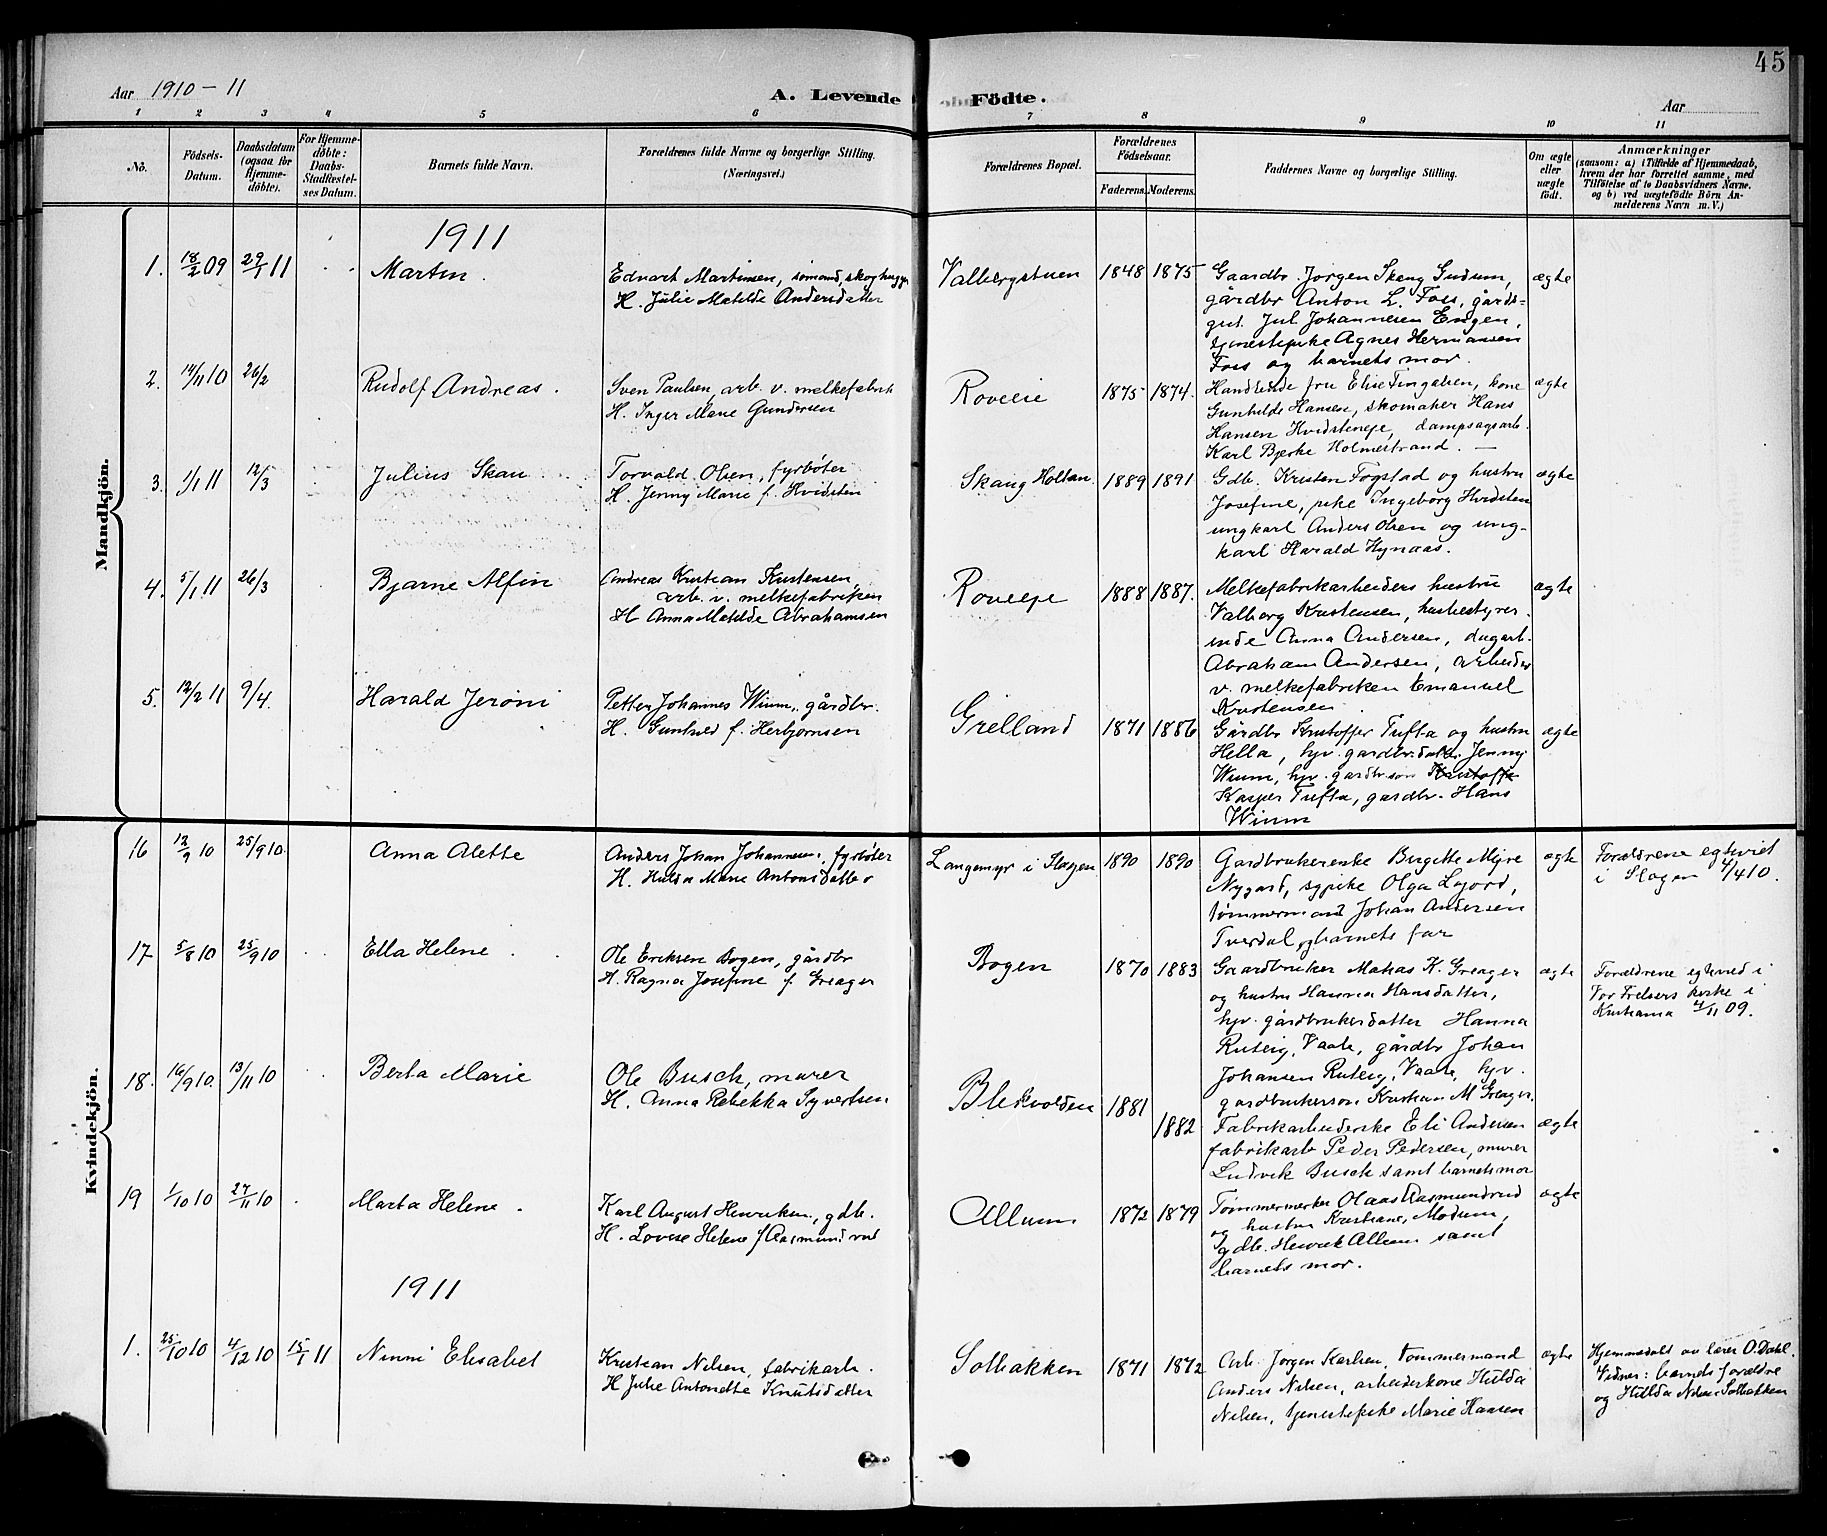 45
Aar 1910-11
A. Levende Födte.
Aar
1 2 3 4 5 6 7 8 9 10 11
No.
Födsels-Datum.
Daabsdatum (ogsaa for Hjemme-döbte).
For Hjemme-döbte: Daabs-Stadfæstel-ses Datum.
Barnets fulde Navn.
Forældrenes fulde Navne og borgerlige Stilling.
(Næringsvei.)
Forældrenes Bopæl.
Forældrenes Födselsaar.
Faderens. Moderens.
Faddernes Navne og borgerlige Stilling.
Om ægte eller uægte födt.
Anmærkninger
(saasom: a) i Tilfælde af Hjemmedaab,
hvem der har forrettet samme, med
Tilföielse af to Daabsvidners Navne.
og b) ved uægtefödte Börn An-
melderens Navn m. V.)
Mandkjön.
1911
1. 18/2 09 29/1 11 Martin.
Edvart Martinsen, sömand, skoghugger
H. Julie Matilde Andersdatter
Valbergstuen 1848 1875
Gaardbr. Jørgen Skaug Gudum,
gårdbr Anton L. Foss, gårds-
gut. Jul Johannesen Engen,
tjenestepike Agnes Hermansen
Foss og barnets mor.
ægte
2. 14/11 10 26/2 Rudolf Andreas.
Sven Paulsen, arb. v. melkefabrik
H. Inger Marie Gundersen
Roveeie 1875 1874.
Handlende fru Elise Tingulsen, kone
Gunhilde Hansen, skomaker Hans
Hansen Hvidsteneje, dampsagarb.
Karl Bjerke Holmestrand. —
ægte
3. 1/1 11 12/3 Julius Skau
Torvald Olsen, fyrböter
H. Jenny Marie f. Hvidsten
Skaug Holtan. 1889 1891
Gdb. Kristen Fogstad og hustru
Josefine, pike Ingeborg Hvidsten
ungkarl Anders Olsen og ung-
karl Harald Hynaas.
ægte
4. 5/1 11 26/3 Bjarne Alfin
Andreas Kristian Kristensen,
arb. v. melkefabriken
H Anna Matilde Abrahamsen
Roveeje 1888 1887.
Melkefabrikarbeiders hustru
Valborg Kristensen, husbestyrer
inde Anna Andersen, dagarb.
Abraham Andersen, arbeider
v. melkefabriken Emanuel
Kristensen.
ægte
5. 12/2 11 9/4. Harald Jerøni
Petter Johannes Wium, gårdbr.
H. Gunhild f. Herbjørnsen
Grelland 1871 1886
Gårdbr Kristoffer Tufta og hustru
Hella, hjv. gardbr.datter Jenny
Wium, hjv. gardbr.son Kristoffer
Kasper Tufta, gardbr. Hans
Wium
ægte
Kvindekjön.
16 12/9 10 25/9 10. Anna Alette
Anders Johan Johannesen, fyrböter
H. Hulda Marie Antonsdatter
Langemyr i Slagen 1890 1890
Gardbrukerenke Birgitte Myre
Nygard, sypike Olga Lajord,
tömmermand Johan Andersen
Tverdal, og barnets far
ægte
Forældrene egteviet
i Slagen 4/4 10.
17 5/8 10 25/9 10 Ella Helene.
Ole Eriksen Bogen, gårdbr
H. Ragna Josefine f. Greager
Bogen 1870 1883
Gaardbruker Matias K. Greager
og hustru Hanna Hansdatter,
hjv. gårdbrukerdatter Hanna
Ruteig, Vaale, gårdbr Johan
Johansen Ruteig, Vaale, hjv.
gardbrukerson Kristian M Greager.
ægte
Forældrene egteviet i
Vor Frelsers kirke i
Kristiania 4/11 09.
18. 16/9 10. 13/11 10 Berta Marie
Ole Busch, murer
H. Anna Rebekka Syvertsen
Blekvolden 1881 1882
Fabrikarbeiderske Eli Andersen
fabrikarb Peder Pedersen, murer
Ludvik Busch samt barnets mor
ægte
19 1/10 10 27/11 10 Marta Helene.
Karl August Henriksen, gdb.
H. Lovise Helene f Aasmundrud
Allum 1872 1879
Tømmermerker Olaus Aasmundrud
og hustru Kristiane, Modum,
gdb. Henrik Allum samt
barnets mor.
ægte
1911
1. 25/10 10 4/12 10 15/1 11 Ninni Elisabet
Kristian Nilsen, fabrikarb.
H Julie Antonette Knutsdatter
Solbakken 1871 1872
Arb. Jørgen Karlsen, tømmermand
Anders Nilsen, arbeiderkone Hulda
Nilsen, tjenestepike Marie Hansen
ægte
Hjemmedøbt av lærer O. Dahl.
Vidner: barnets forældre
og Hulda Nilsen Solbakken